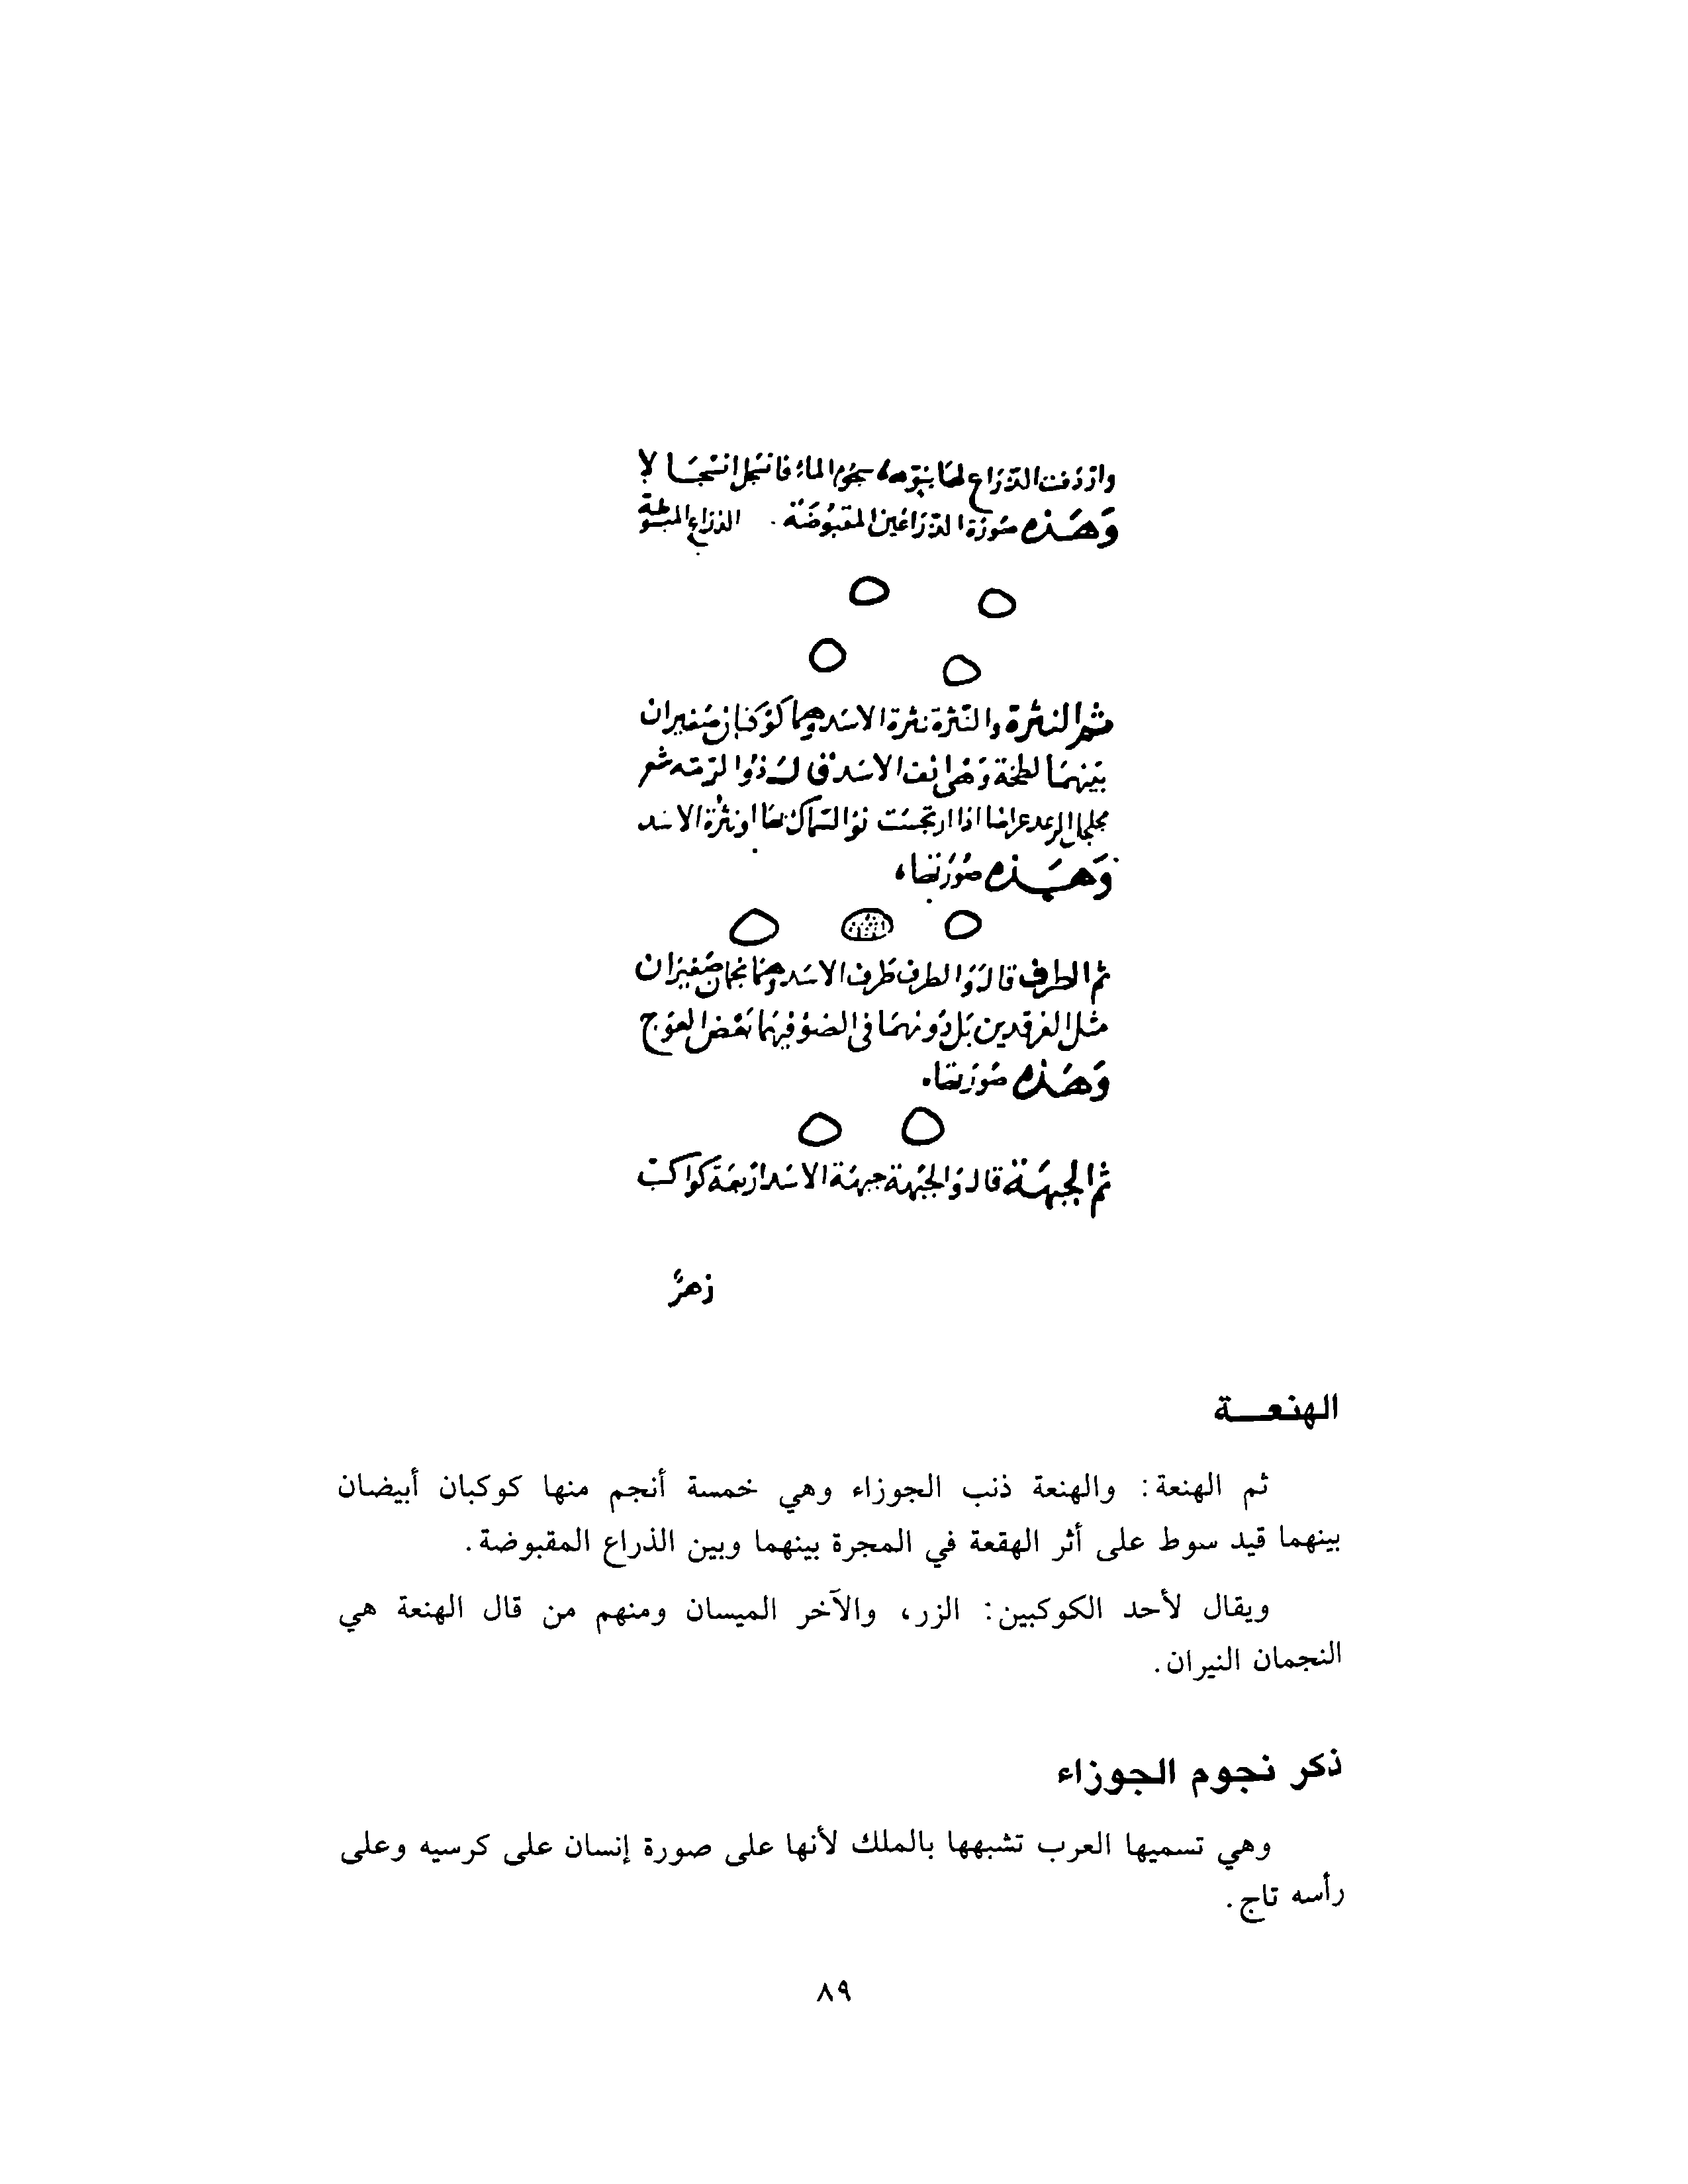 واردفت الذراع لها بنوء سجوم الماء فانسجل انسجالا
وهذه صورة الذراعين المقبوضة. الذراع المبسوطة
ثم النثرة والنثرة نثرة الاسد وهما كوكبان صغيران
بينهما لطخة وهى انف الاسد قال ذوا لرمه شعر
مجلجل الرعد عراصا اذا ارتجست نوا السماك بها او نثرة الاسد
وهذه صورتها،
ثم الطرف قال والطرف طرف الاسد وهما نجمان صغيران
مثل الفرقدين بل دونهما فى الضوء فيهما بعض العوج
وهذه صورتها.
ثم الجبهة قال والجبهة جبهة الاسد اربعة كواكب
زهر
الهنعـــة
ثم الهنعة: والهنعة ذنب الجوزاء وهي خمسة أنجم منها كوكبان أبيضان
بينهما قيد سوط على أثر الهقعة في المجرة بينهما وبين الذراع المقبوضة.
ويقال لأحد الكوكبين: الزر، والآخر الميسان ومنهم من قال الهنعة هي
النجمان النيران.
ذكر نجوم الجوزاء
وهي تسميها العرب تشبهها بالملك لأنها على صورة إنسان على كرسيه وعلى
رأسه تاج.
٨٩